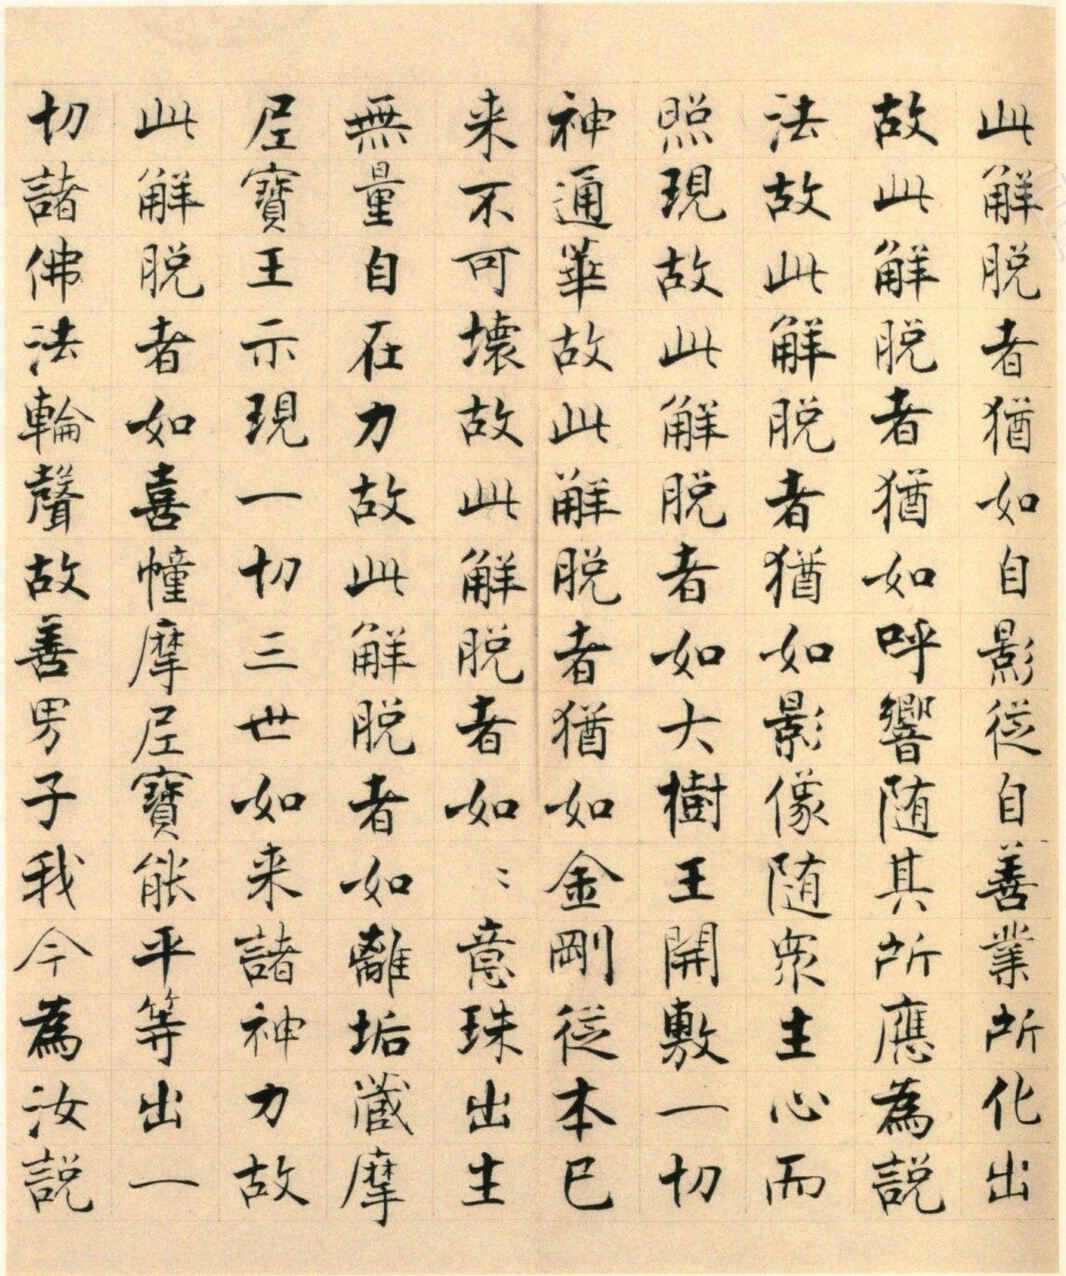 此解脱者猶如自影従自善業所化出
故此解脱者猶如呼響随其所應為説
法故此解脱者猶如影像随衆主心而
照現故此解脱者如大樹王開敷一切
神通華故此解脱者猶如金剛従本已
来不可壊故此解脱者如〻意珠出主
無量自在力故此解脱者如離垢蔵摩
尼寶王示現一切三世如来諸神力故
此解脱者如喜幢摩尼寶能平等出一
切諸佛法輪聲故善男子我今為汝説